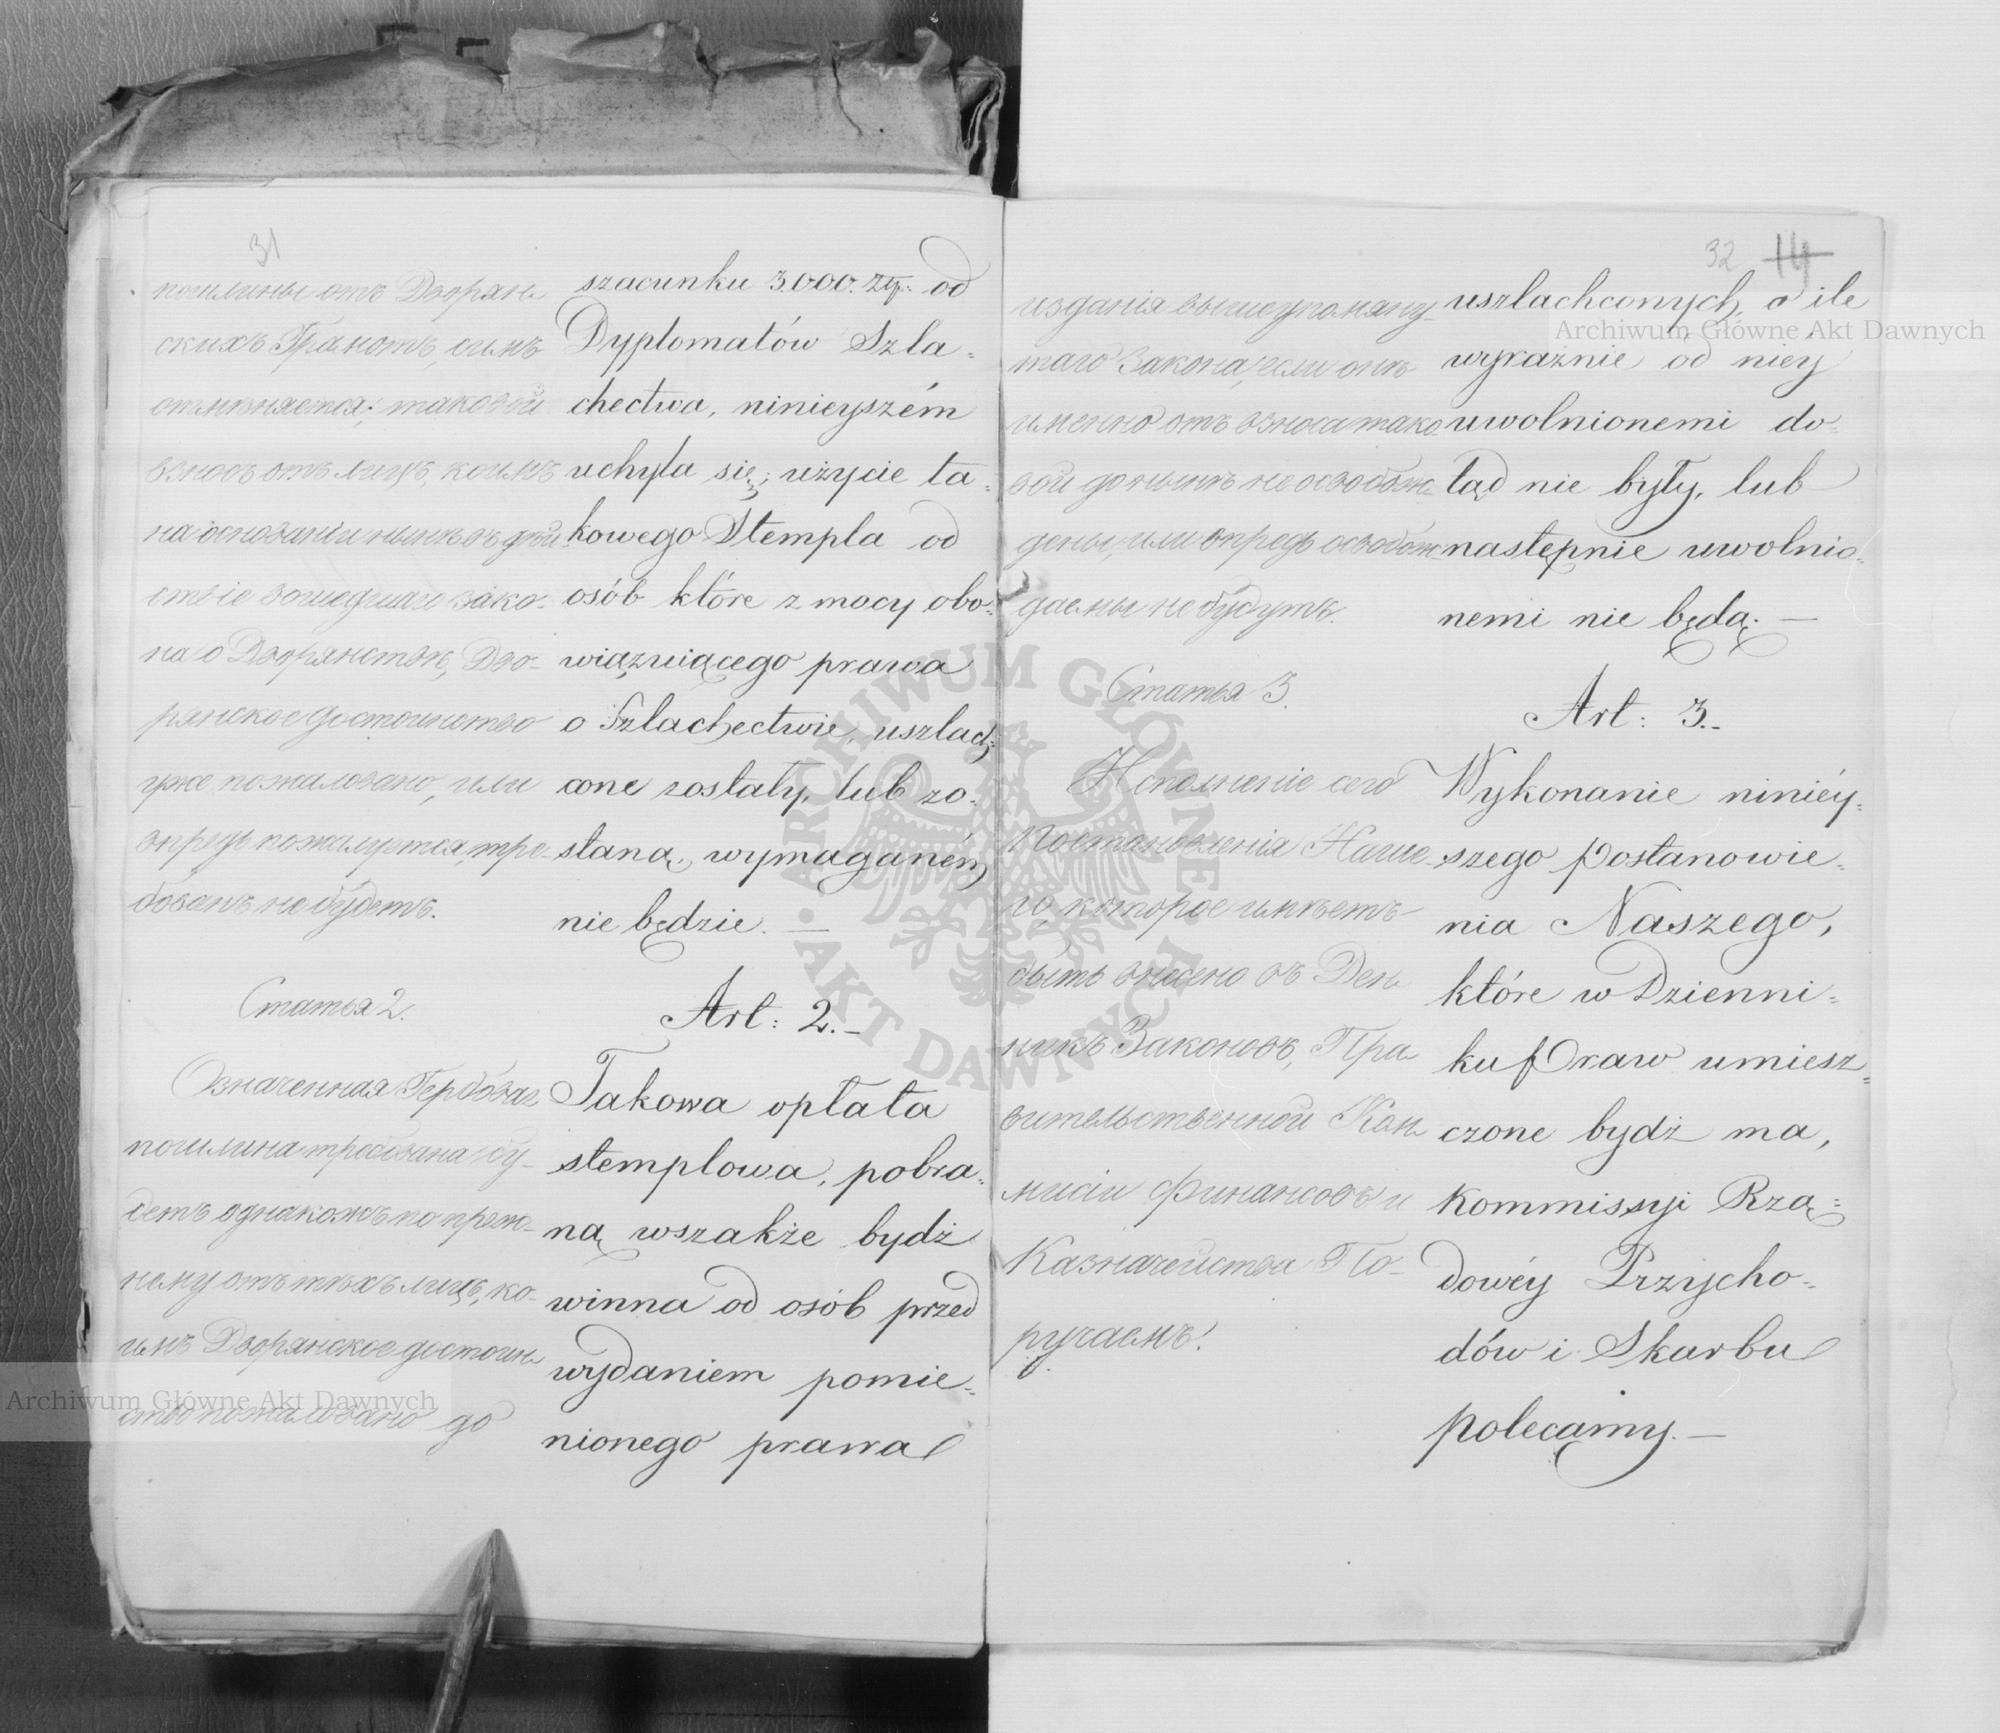 31
пошлины отъ Дворян-
скихъ Грамотъ, симъ
отмѣняется; таковой
взносъ отъ лицъ, коимъ
на основаніи нынѣ въ дѣй-
ствіе вошедшаго зако-
на о Дворянствѣ, Дво-
рянское достоинство
уже пожаловано, или
впредь пожалуется, тре-
бованъ не будетъ.
Статья 2.
Означенная Гербовая
пошлина требована бу-
детъ однакожъ по преж-
нему отъ тѣхъ лицъ, ко-
имъ Дворянское достоин-
ство пожаловано до
szacunku 3.000. Złp: od
Dyplomatów Szla-
chectwa, ninieyszém
uchyla się; użycie ta-
kowego Stempla od
osób które z mocy obo-
wiązuiącego prawa
o Szlachectwie, uszlach-
cone zostały, lub zo-
staną, wymaganém
nie będzie. —
Art: 2.—
Takowa opłata
stemplowa, pobra-
ną wszakże bydź
winna od osób przed
wydaniem pomie-
nionego prawa
32 14
изданія вышеупомяну-
таго Закона, если они
именно отъ взноса тако-
вой донынѣ не освобож-
дены, или впредь освобож-
даемы не будутъ.
Статья 3.
Исполненіе сего
Постановленія Наше-
го, которое имѣетъ
быть внесено въ Днев-
никъ Законовъ, Пра-
вительственной Ком-
мисіи Финансовъ и
Казначейства По-
ручаемъ.
uszlachconych, o ile
wyraźnie od niey
uwolnionemi do-
tąd nie były, lub
następnie uwolnio-
nemi nie będą. —
Art: 3.—
Wykonanie niniéy-
szego Postanowie-
nia Naszego,
które w Dzienni-
ku Praw umiesz-
czone bydź ma,
Kommissyi Rzą-
dowéy Przycho-
dów i Skarbu
polecamy. —
Archiwum Główne Akt Dawnych
Archiwum Główne Akt Dawnych
ARCHIWUM GŁÓWNE • AKT DAWNYCH •